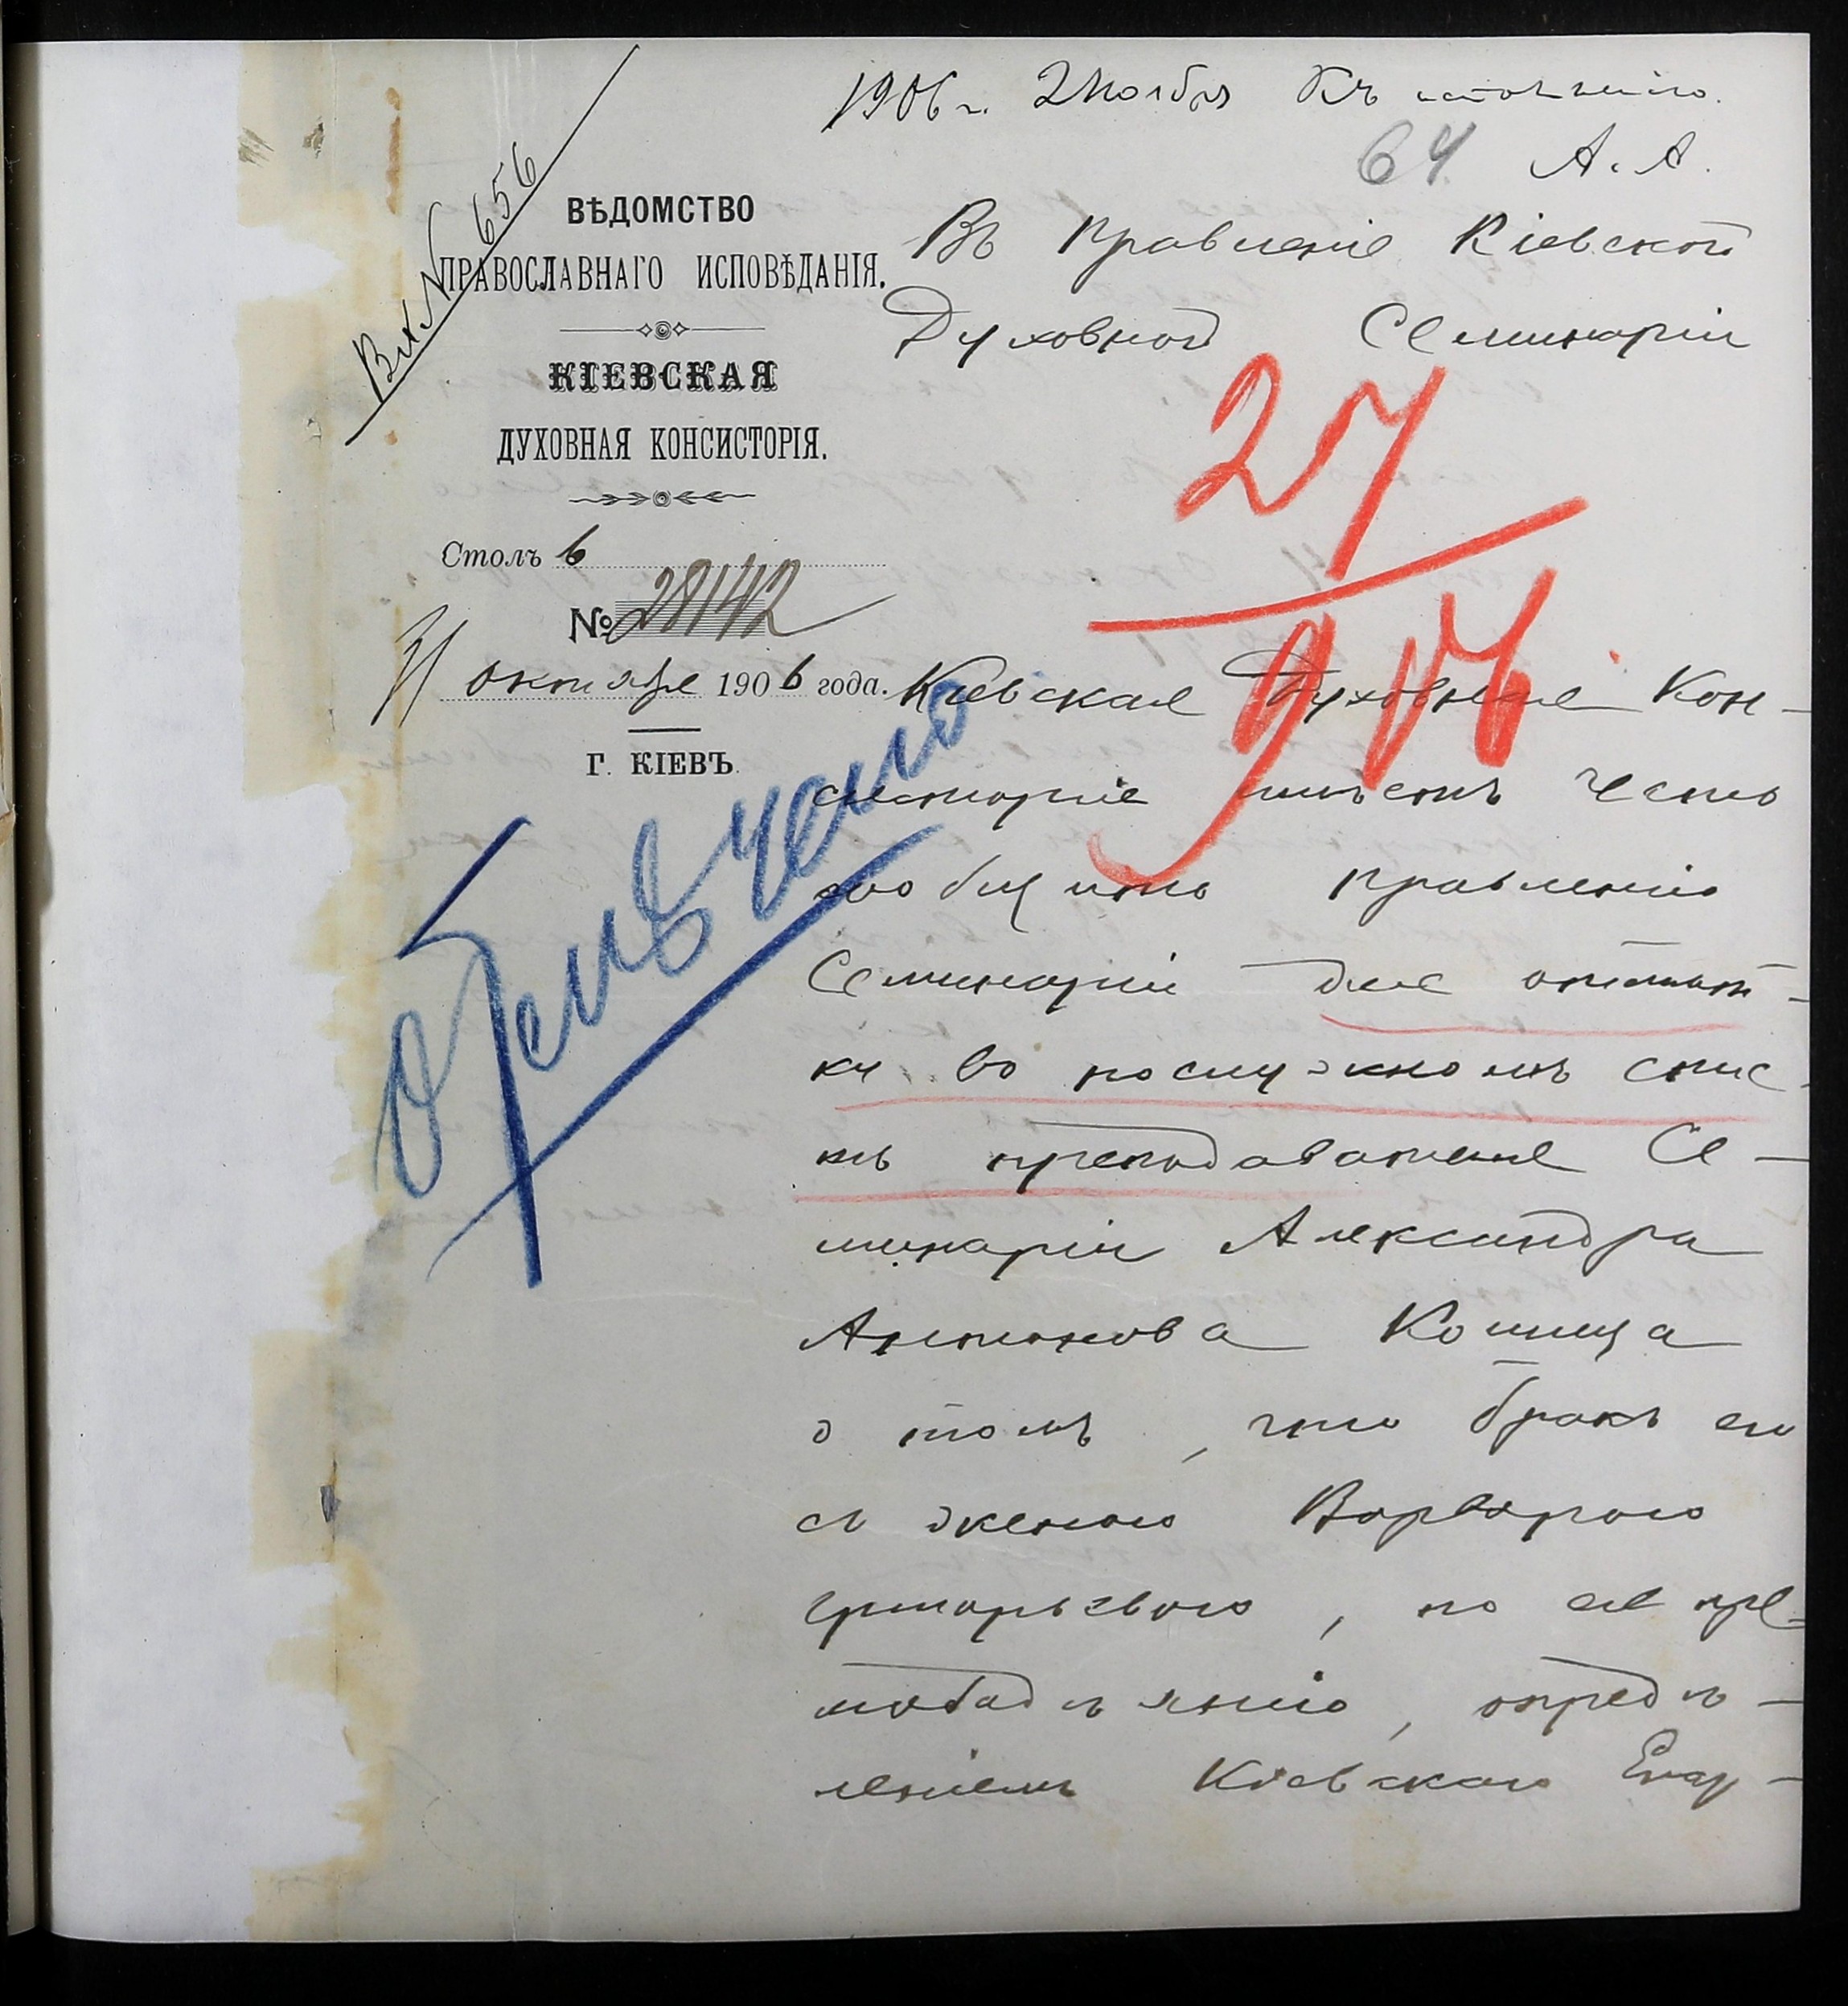 1906 г. 2 Ноября Къ исполненію.
64 А. А.
Вх № 656
ВѢДОМСТВО
ПРАВОСЛАВНАГО ИСПОВѢДАНІЯ.
КІЕВСКАЯ
ДУХОВНАЯ КОНСИСТОРІЯ.
Столъ 6
№ 28142
31 октября 1906 года.
Г. КІЕВЪ.
Отмѣчено
Въ Правленіе Кіевской
Духовной Семинаріи
27
906
Кіевская Духовная Кон-
систорія имѣетъ честь
сообщить Правленію
Семинаріи для отмѣт-
ки въ послужномъ спис-
кѣ преподавателя Се-
минаріи Александра
Антонова Кошица
о томъ, что бракъ его
съ женою Варварою
Григорьевою, по ея пре-
любодѣянію, опредѣ-
леніемъ Кіевскаго Епар-